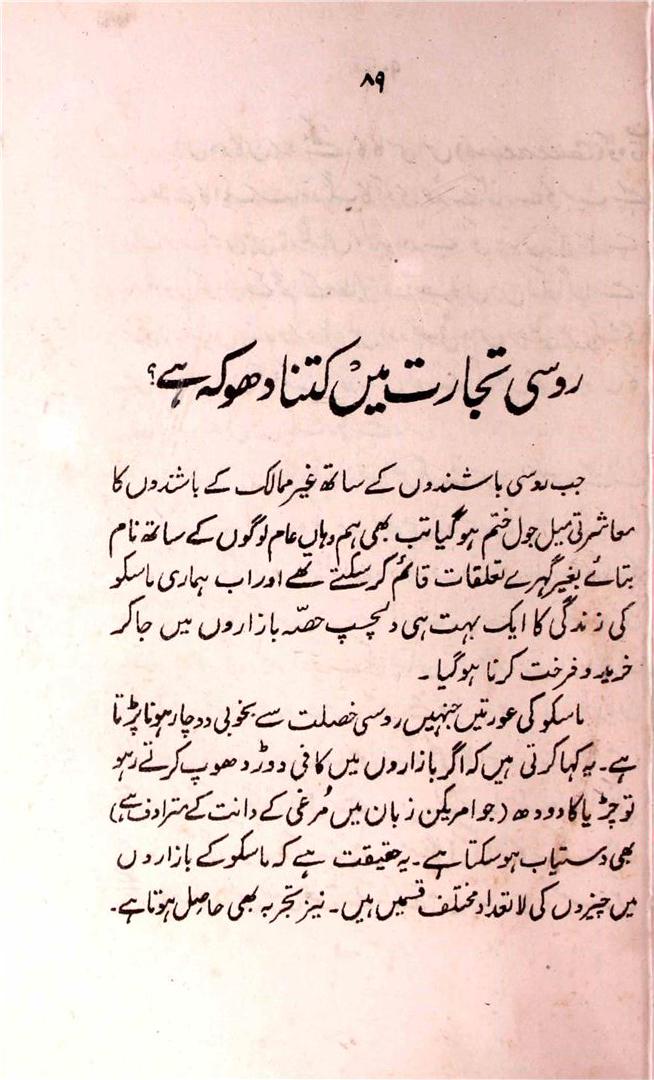 ۸۹
روسی تجارت میں کتنا دھوکہ ہے؟
جب روسی باشندوں کے ساتھ غیر ممالک کے باشندوں کا
معاشرتی میل جول ختم ہو گیا تب بھی ہم وہاں عام لوگوں کے ساتھ نام
بتائے بغیر گہرے تعلقات قائم کر سکتے تھے اور اب ہماری ماسکو
کی زندگی کا ایک بہت ہی دلچسپ حصّہ بازاروں میں جا کر
خرید و فرخت کرنا ہو گیا ۔
ماسکو کی عورتیں جنہیں روسی خصلت سے بخوبی دوچار ہونا پڑتا
ہے ۔ یہ کہا کرتی ہیں کہ اگر بازاروں میں کافی دوڑ دھوپ کرتے رہو
تو چڑیا کا دودھ (جو امریکن زبان میں مُرغی کے دانت کے مترادف ہے)
بھی دستیاب ہو سکتا ہے ۔ یہ حقیقت ہے کہ ماسکو کے بازاروں
میں چیزوں کی لا تعداد مختلف قسمیں ہیں ۔ نیز تجربہ بھی حاصل ہوتا ہے ۔